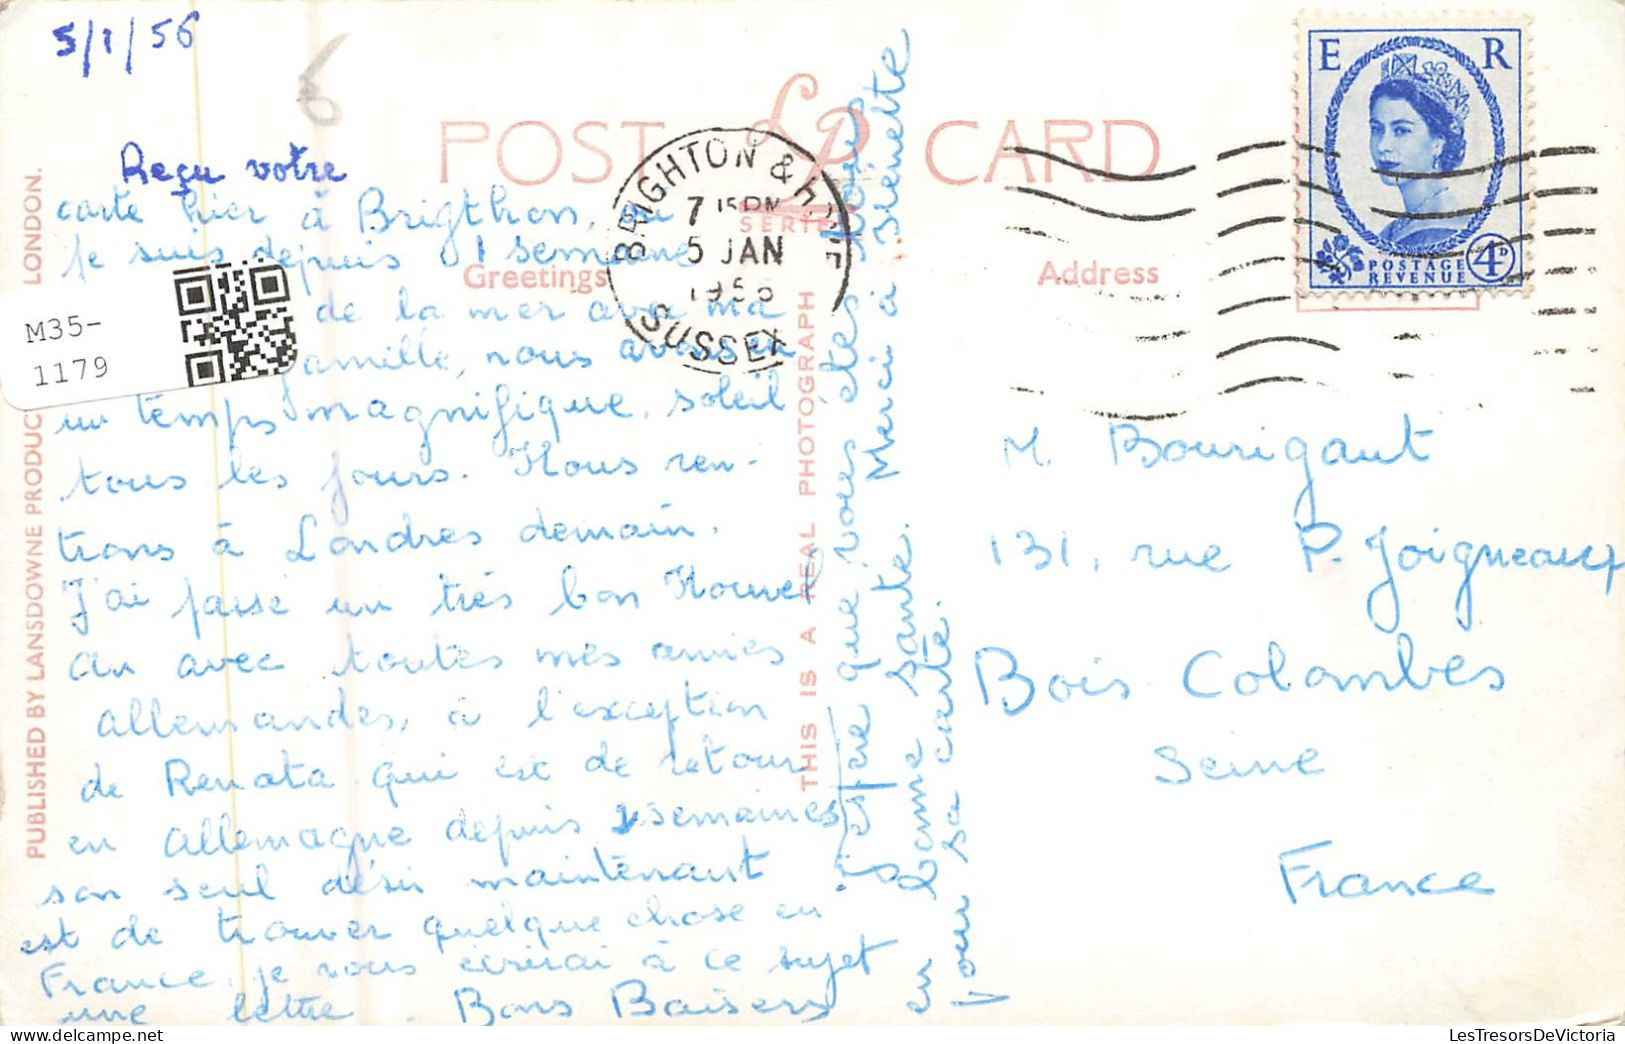 5/1/56
6
POST CARD
LP
SERIES
Greetings
Address
BRIGHTON &
7 15 PM
5 JAN
1956
SUSSEX
E R
POSTAGE
REVENUE
4D
PUBLISHED BY LANSDOWNE PRODUC
LONDON.
THIS IS A REAL PHOTOGRAPH
M35-
1179
Reçu votre
carte hier à Brigthon, où
je suis depuis 1 semaine
de la mer avec ma
famille, nous avons eu
un temps magnifique, soleil
tous les jours. Nous ren-
trons à Londres demain.
J'ai passé un très bon Nouvel
an avec toutes mes amies
allemandes, à l'exception
de Renata qui est de retour
en Allemagne depuis 2 semaines
son seul désir maintenant
est de trouver quelque chose en
France, je vous écrirai à ce sujet
une lettre. Bons Baisers
J'espère que vous êtes tous
en bonne santé. Merci à Ginette
pour sa carte.
M. Bourigaut
131, rue P. Joigneaux
Bois Colombes
Seine
France
LesTresorsDeVictoria.com